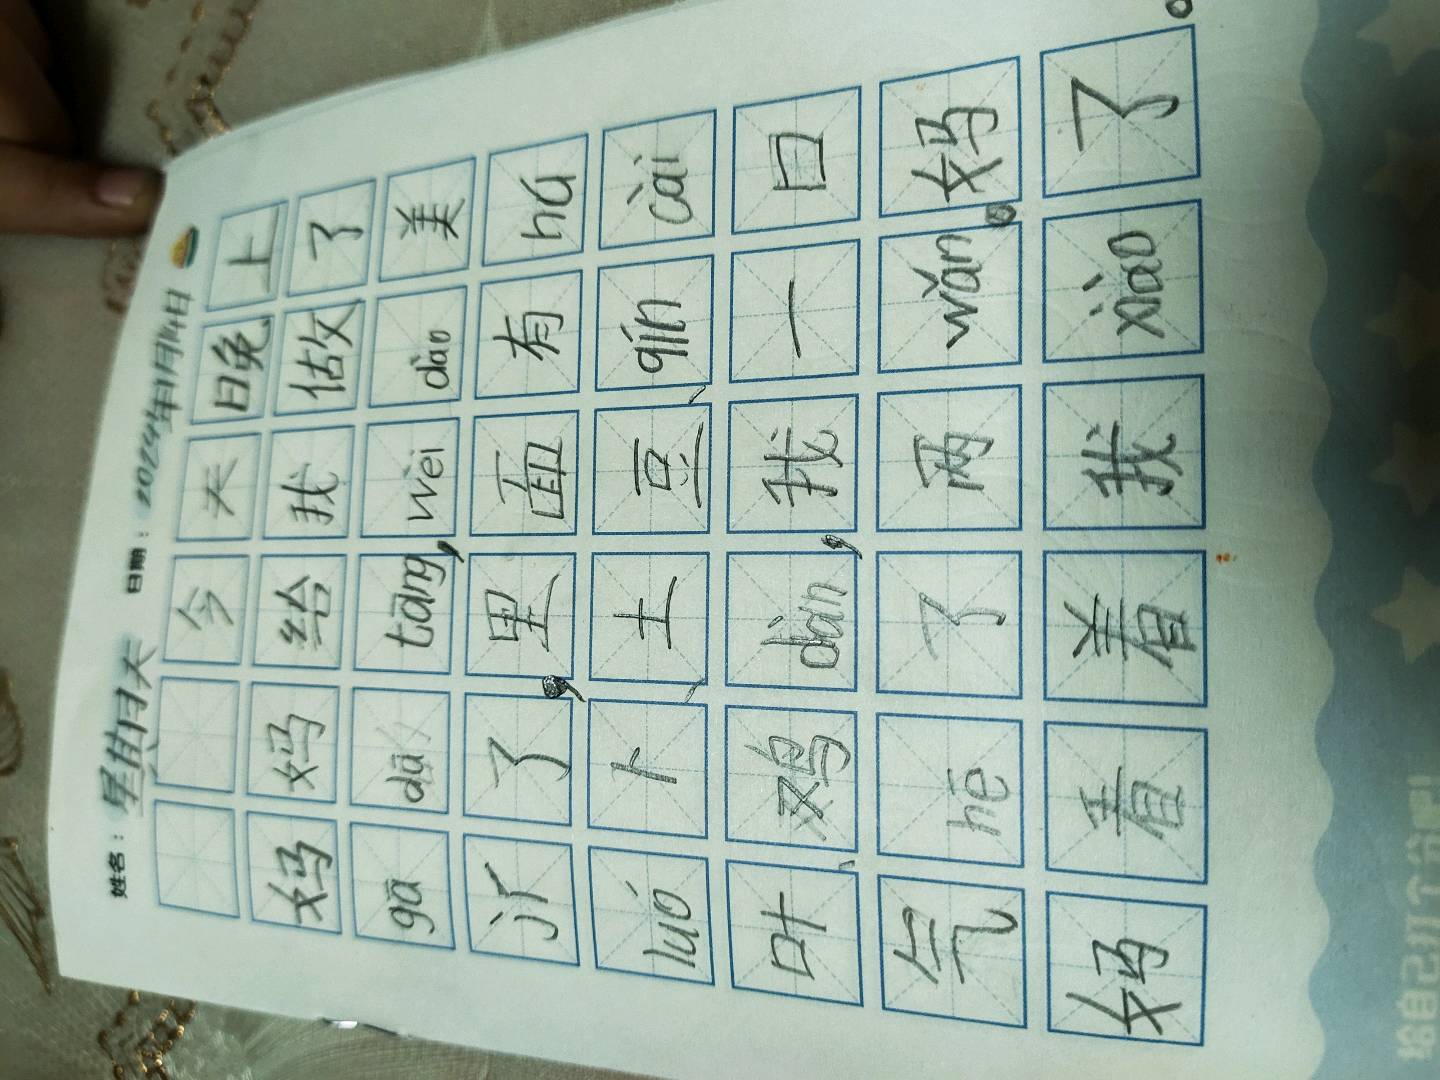 姓名：星期天 日期：2024年1月14日
今天晚上
妈妈给我做了
gā dā tāng，wèi dào 美
了，里面有 hú
luó 卜、土豆、qín cài
叶、鸡 dàn，我一口
气 hē 了两 wǎn。妈
妈看着我 xìao 了。
给自己打个分吧!